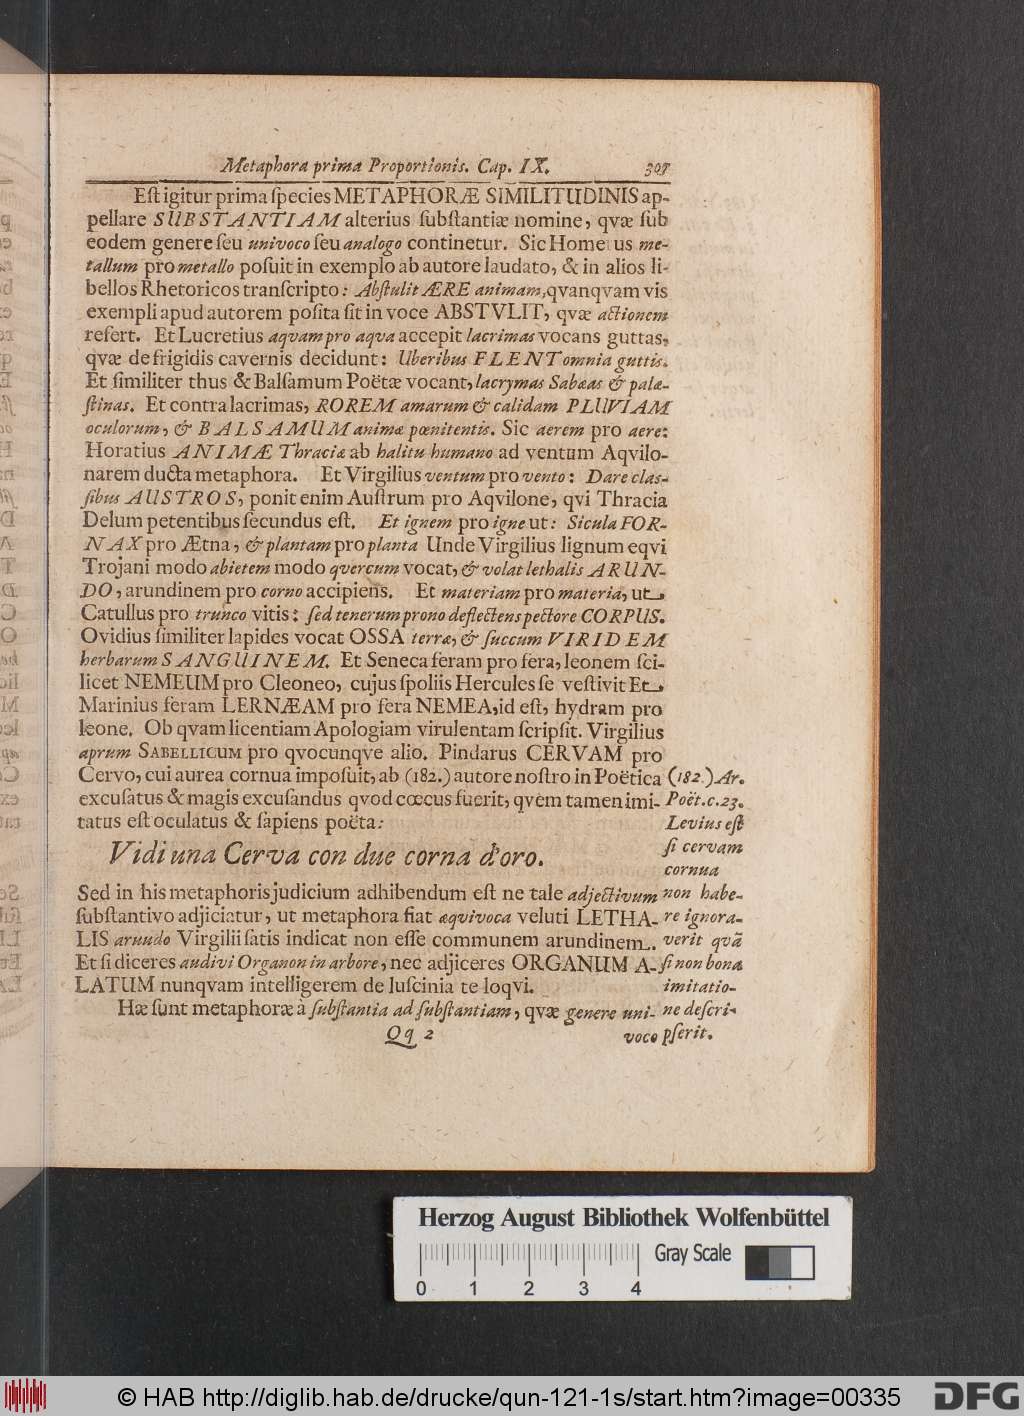 Metaphora prima Proportionis. Cap. IX. 307
Eſt igitur prima ſpecies METAPHORÆ SIMILITUDINIS ap-
pellare SUBSTANTIAM alterius ſubſtantiæ nomine, qvæ ſub
eodem genere ſeu univoco ſeu analogo continetur. Sic Homerus me-
tallum pro metallo poſuit in exemplo ab autore laudato, & in alios li-
bellos Rhetoricos tranſcripto: Abſtulit ÆRE animam, qvanqvam vis
exempli apud autorem poſita ſit in voce ABSTVLIT, qvæ actionem
refert. Et Lucretius aqvam pro aqva accepit lacrimas vocans guttas,
qvæ de frigidis cavernis decidunt: Uberibus FLENT omnia guttis.
Et ſimiliter thus & Balſamum Poëtæ vocant, lacrymas Sabæas & palæ-
ſtinas. Et contra lacrimas, ROREM amarum & calidam PLUVIAM
oculorum, & BALSAMUM animæ pœnitentis. Sic aerem pro aere:
Horatius ANIMÆ Thraciæ ab halitu humano ad ventum Aqvilo-
narem ducta metaphora. Et Virgilius ventum pro vento: Dare claſ-
ſibus AUSTROS, ponit enim Auſtrum pro Aqvilone, qvi Thracia
Delum petentibus ſecundus eſt. Et ignem pro igne ut: Sicula FOR-
NAX pro Ætna, & plantam pro planta Unde Virgilius lignum eqvi
Trojani modo abietem modo qvercum vocat, & volat lethalis ARUN-
DO, arundinem pro corno accipiens. Et materiam pro materia, ut,
Catullus pro trunco vitis: ſed tenerum prono deflectens pectore CORPUS.
Ovidius ſimiliter lapides vocat OSSA terræ, & ſuccum VIRIDEM
herbarum SANGUINEM. Et Seneca feram pro fera, leonem ſci-
licet NEMEUM pro Cleoneo, cujus ſpoliis Hercules ſe veſtivit Et,
Marinius feram LERNÆAM pro fera NEMEA, id eſt, hydram pro
leone. Ob qvam licentiam Apologiam virulentam ſcripſit. Virgilius
aprum SABELLICUM pro qvocunqve alio. Pindarus CERVAM pro
Cervo, cui aurea cornua impoſuit, ab (182.) autore noſtro in Poëtica
excuſatus & magis excuſandus qvod cœcus fuerit, qvem tamen imi-
tatus eſt oculatus & ſapiens poëta:
Vidi una Cerva con due corna d'oro.
Sed in his metaphoris judicium adhibendum eſt ne tale adjectivum
ſubſtantivo adjiciatur, ut metaphora fiat æqvivoca veluti LETHA-
LIS arundo Virgilii ſatis indicat non eſſe communem arundinem.
Et ſi diceres audivi Organon in arbore, nec adjiceres ORGANUM A-
LATUM nunqvam intelligerem de luſcinia te loqvi.
Hæ ſunt metaphoræ à ſubſtantia ad ſubſtantiam, qvæ genere uni-
Qq 2 voco
(182.) Ar.
Poët. c. 23.
Levius eſt
ſi cervam
cornua
non habe-
re ignora-
verit qvã
ſi non bona
imitatio-
ne deſcri-
pſerit.
Herzog August Bibliothek Wolfenbüttel
Gray Scale
0 1 2 3 4
© HAB http://diglib.hab.de/drucke/qun-121-1s/start.htm?image=00335
DFG